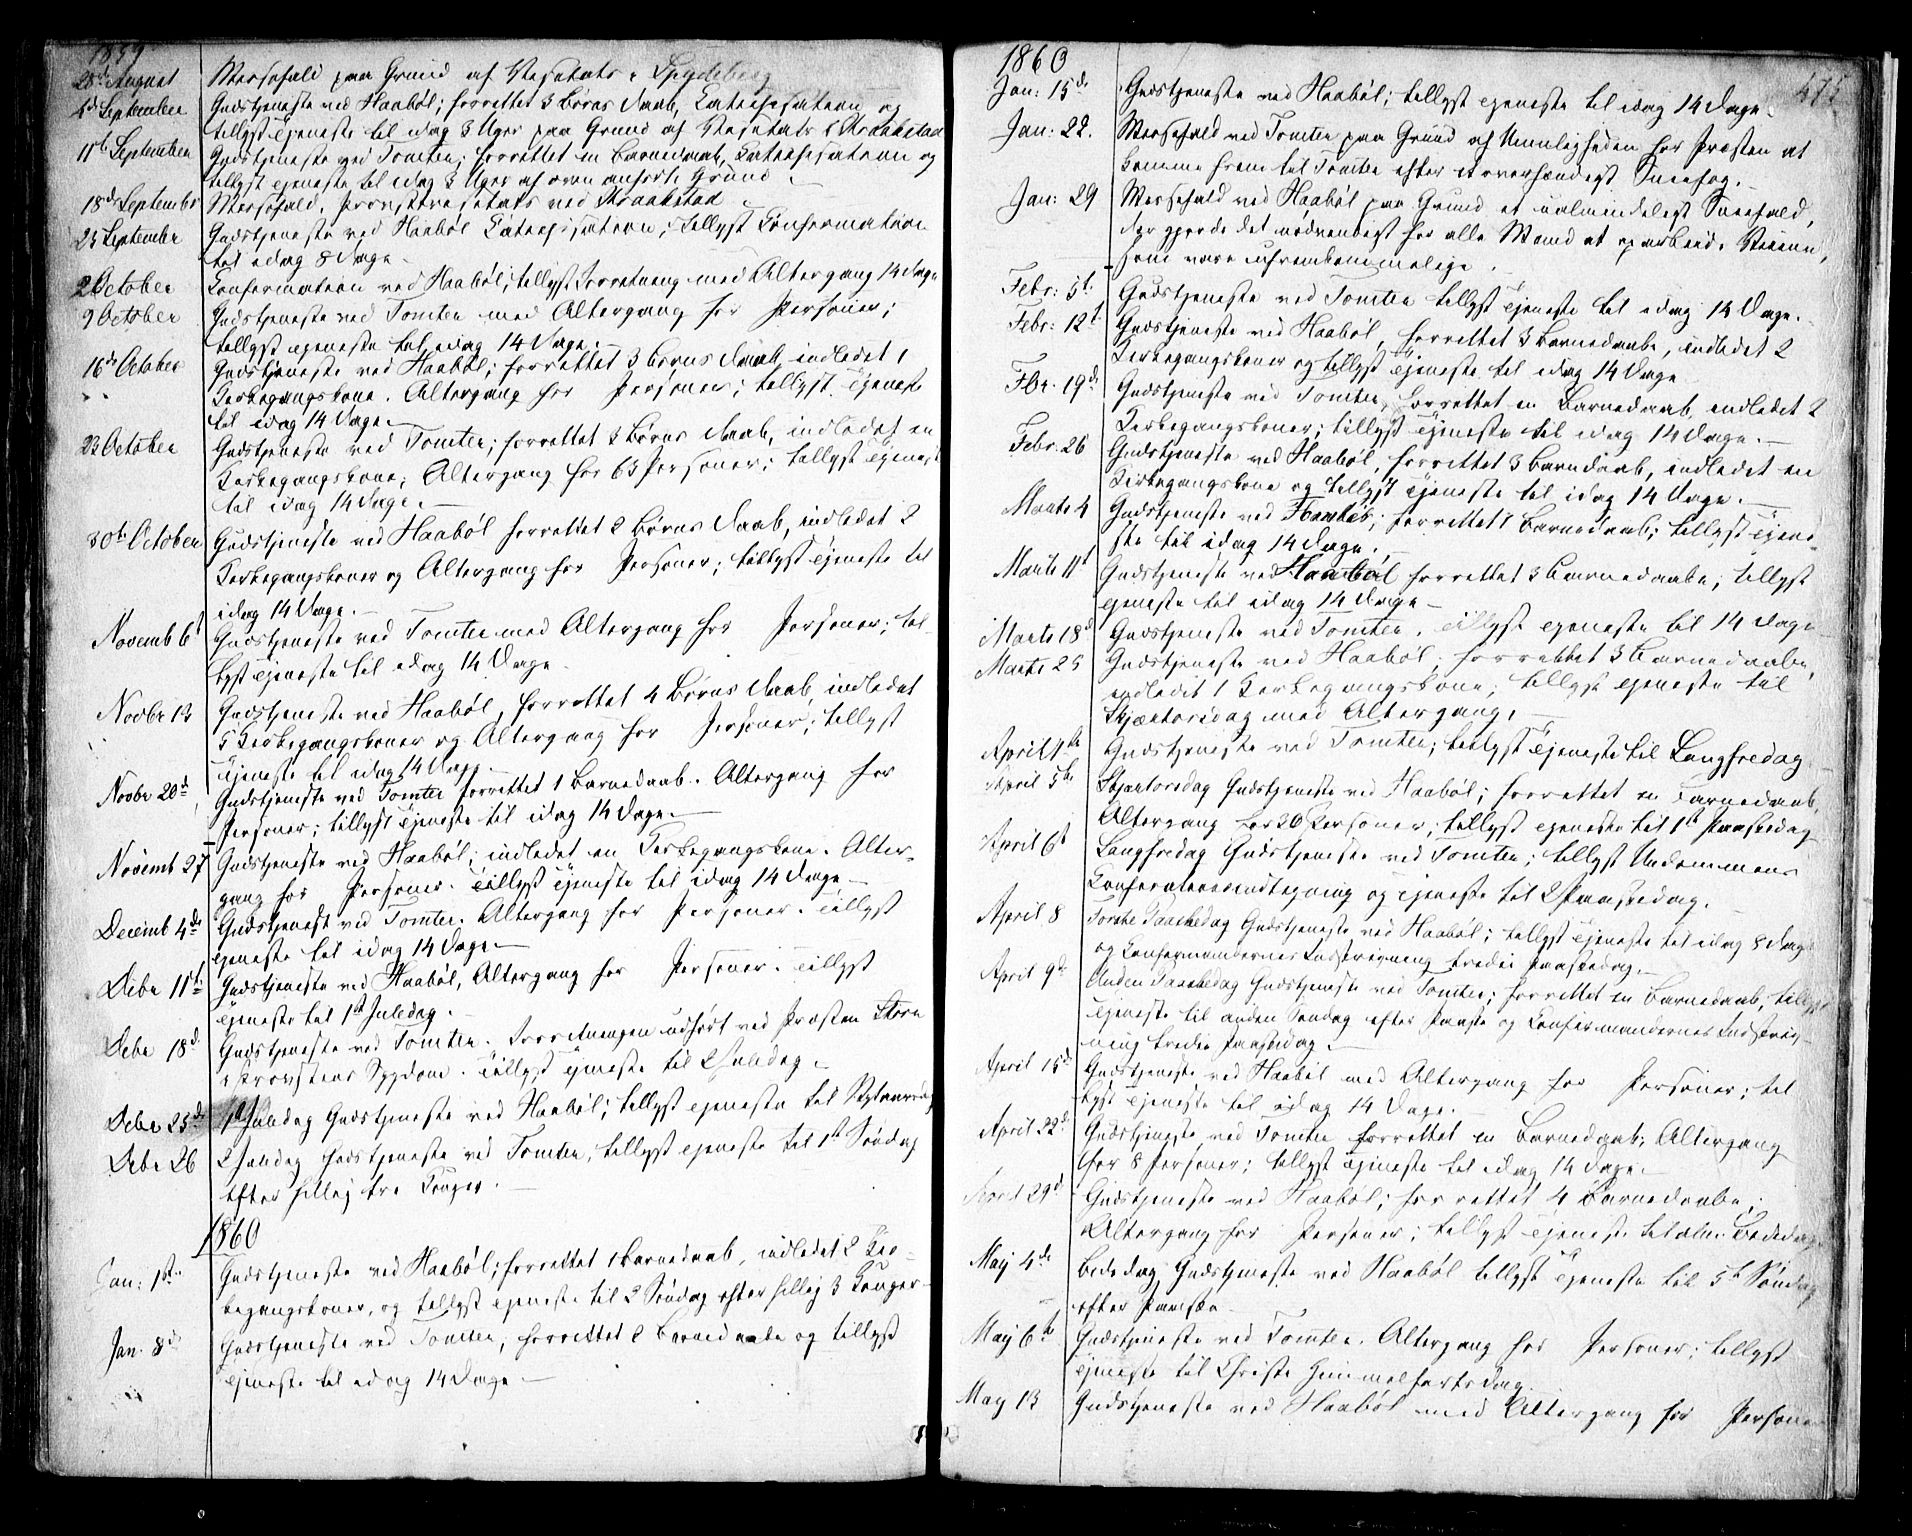 1859
28de August Messefald paa Grund af Visitats i Spydeberg
4de September Gudstjeneste ved Haabøl; forrettet 3 Børns Daab, Catechisation og
tillyst Tjeneste til idag 3 Uger paa Grund af Visitats i Kraakstad
11te September Gudstjeneste ved Tomter; forrettet en Barnedaab, Catechisation og
tillyst Tjeneste til idag 3 Uger af oven anførte Grund
18de September Messefald, Provstevisitats ved Kraakstad
25 September Gudstjeneste ved Haabøl Catechisation; tillyst Confirmation
til idag 8 Dage
2 October Confirmation ved Haabøl; tillyst Forretning med Altergang 14 Dage
9 October Gudstjeneste ved Tomter med Altergang for Personer;
tillyst Tjeneste til idag 14 Dage.
16de October Gudstjeneste ved Haabøl; forrettet 3 Børns Daab, indledet 1
Kirkegangskone. Altergang for Personer; tillyst Tjeneste
til idag 14 Dage
23 October Gudstjeneste ved Tomter; forrettet 3 Børns Daab, indledet en
Kirkegangskone; Altergang for 63 Personer; tillyst Tjeneste
til idag 14 Dage.
30te October Gudstjeneste ved Haabøl forrettet 2 Børns Daab, indledet 2
Kirkegangskoner og Altergang for Personer; tillyst Tjeneste til
idag 14 Dage.
Novemb 6t Gudstjeneste ved Tomter med Altergang for Personer; til-
lyst Tjeneste til idag 14 Dage.
Novbr 13 Gudstjeneste ved Haabøl, forrettet 4 Børns Daab, indledet
5 Kirkegangskoner og Altergang for Personer; tillyst
Tjeneste til idag 14 Dage.
Novbr 20de Gudstjeneste ved Tomter forrettet 1 Barnedaab. Altergang for
Personer; tillyst Tjeneste til idag 14 Dage.
Novemb 27 Gudstjeneste ved Haabøl; indledet en Kirkegangskone. Alter-
gang for Personer. Tillyst Tjeneste til idag 14 Dage
Decemb 4de Gudstjenest ved Tomter. Altergang for Personer. Tillyst
Tjeneste til idag 14 Dage.
Debr 11te Gudstjeneste ved Haabøl, Altergang for Personer. Tillyst
Tjeneste til 1st Juledag.
Debr 18d Gudstjeneste ved Tomter. Forretningen udført ved Præsten Steen
i Provstens Sygdom. Tillyst Tjeneste til 2 Juledag.
Debr 25de 1st Juledag Gudstjeneste ved Haabøl; tillyst Tjeneste til Nytaarsdag
Debr 26 2 Juledag Gudstjeneste ved Tomter, tillyst Tjeneste til 1st Søndag
efter hellig tre Konger.
1860
Jan: 1ste Gudstjeneste ved Haabøl; forrettet 1 Barnedaab, indledet 2 Kir-
kegangskoner, og tillyst Tjeneste til 2 Søndag efter hellig 3 Konger
Jan. 8de Gudstjeneste ved Tomter, forrettet 2 Barnedaabe og tillyst
Tjeneste til idag 14 Dage.
1860
475
Jan: 15de Gudstjeneste ved Haabøl; tillyst Tjeneste til idag 14 Dage.
Jan: 22. Messefald ved Tomter paa Grund af Umuligheden for Præsten at
komme frem til Tomter efter et overhændigt Sneefog.
Jan: 29 Messefald ved Haabøl paa Grund et ualmindeligt Sneefald,
der gjorde det nødvendigt for alle Mand at oparbeide Veiene,
som vare ufremkommelige.
Febr: 5t Gudstjeneste ved Tomter tillyst Tjeneste til idag 14 Dage.
Febr: 12t Gudstjeneste ved Haabøl, forrettet 3 Barnedaabe, indledet 2
Kirkegangskoner og tillyst Tjeneste til idag 14 Dage
Fbr. 19de Gudstjeneste ved Tomter, forrettet en Barnedaab, indledet 2
Kirkegangskoner; tillyst Tjeneste til idag 14 Dage.
Febr. 26 Gudstjeneste ved Haabøl, forrettet 3 Barnedaab, indledet en
Kirkegangskone og tillyst Tjeneste til idag 14 Dage.
Marts 4 Gudstjeneste ved Haabøl; forrettet 1 Barnedaab; tillyst Tjene-
ste til idag 14 Dage.
Marts 11t Gudstjeneste ved Haabøl forrettet 3 Barnedaabe, tillyst
Tjeneste til idag 14 Dage
Marts 18d Gudstjeneste ved Tomter. Tillyst Tjeneste til 14 Dage
Marts 25 Gudstjeneste ved Haabøl; forrettet 3 Barnedaabe,
indledit 1 Kirkegangskone; tillyst Tjeneste til
Skjærtorsdag med Altergang.
April 1ste Gudstjeneste ved Tomter; tillyst Tjeneste til Langfredag
April 5te Skjærtorsdag Gudstjeneste ved Haabøl; forrettet en Barnedaab,
Altergang for 26 Personer; tillyst Tjeneste til 1st Paaskedag
April 6t Langfredag Gudstjeneste ved Tomter; tillyst Ungdommens
og Tjeneste til 2 Paaskedag.
April 8 Første Paaskedag Gudstjeneste ved Haabøl; tillyst Tjeneste til idag 8 Dage
og Confirmandernes Indskrivning tredie Paaskedag.
April 9de Anden Paaskedag Gudstjeneste ved Tomter; forrettet en Barnedaab; tillyst
Tjeneste til anden Søndag efter Paaske og Confirmandernes Indskriv-
ning tredie Paaskedag.
April 15de Gudstjeneste ved Haabøl med Altergang for Personer; til
lyst Tjeneste til idag 14 Dage.
April 22de Gudstjeneste ved Tomter forrettet en Barnedaab; Altergang
for 8 Personer; tillyst Tjeneste til idag 14 Dage.
April 29d Gudstjeneste ved Haabøl; forrettet 4 Barnedaabe;
Altergang for Personer; tillyst Tjeneste til alm. Bededag
Maj 4de Bededag Gudstjeneste ved Haabøl tillyst Tjeneste til 5te Søndag
efter Paaske
Maj 6te Gudstjeneste ved Tomter. Altergang for Personer; tillyst
Tjeneste til Christi Himmelfartsdag.
May 13 Gudstjeneste ved Haabøl med Altergang for Persone